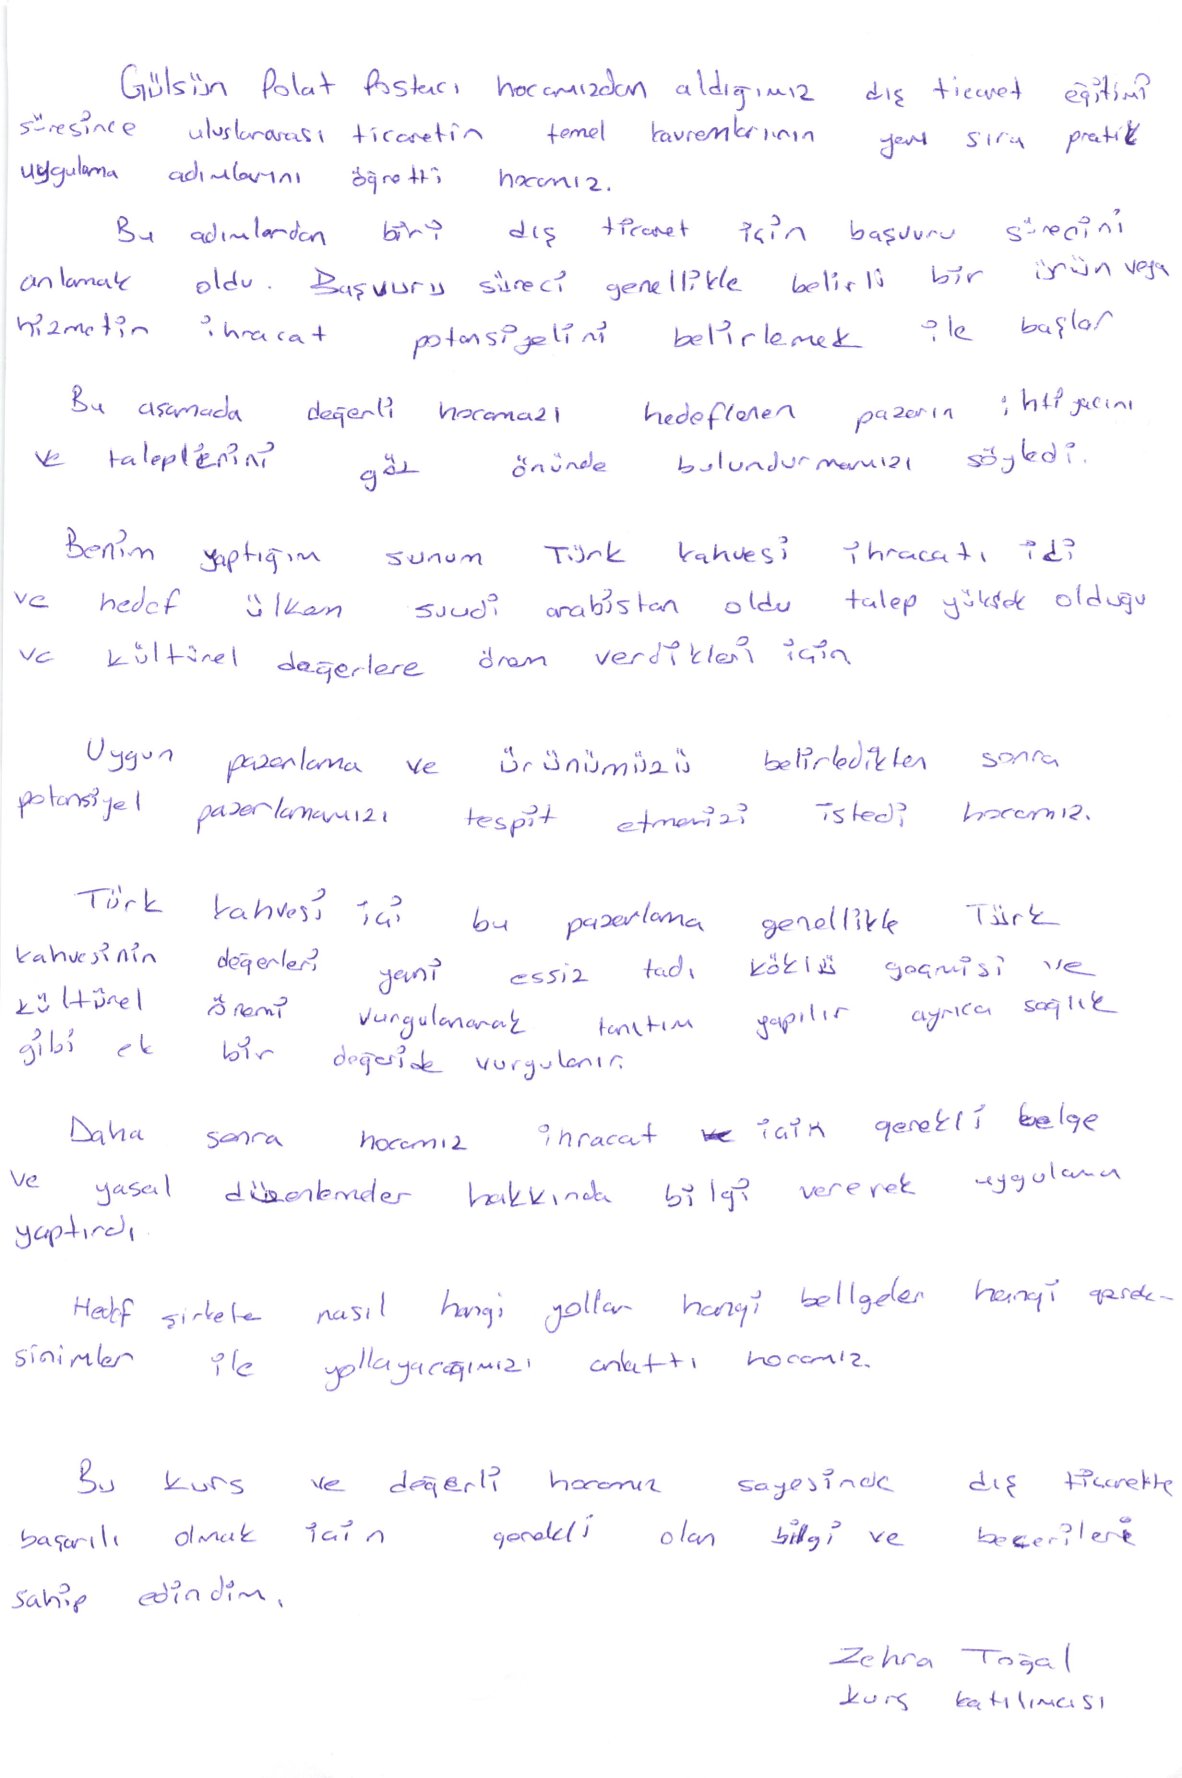 Gülsün Polat Postacı hocamızdan aldığımız dış ticaret eğitimi
süresince uluslararası ticaretin temel kavramlarının yanı sıra pratik
uygulama adımlarını öğretti hocamız.
Bu adımlardan biri dış ticaret için başvuru sürecini
anlamak oldu. Başvuru süreci genellikle belirli bir ürün veya
hizmetin ihracat potansiyelini belirlemek ile başlar
Bu aşamada değerli hocamızı hedeflenen pazarın ihtiyacını
ve taleplerini göz önünde bulundurmamızı söyledi.
Benim yaptığım sunum Türk kahvesi ihracatı idi
ve hedef ülkem suudi arabistan oldu talep yüksek olduğu
ve kültürel değerlere önem verdikleri için
Uygun pazarlama ve ürünümüzü belirledikten sonra
potansiyel pazarlamamızı tespit etmemizi istedi hocamız.
Türk kahvesi içi bu pazarlama genellikle Türk
kahvesinin değerleri yani essiz tadı köklü geçmişi ve
kültürel önemi vurgulanarak tanıtım yapılır ayrıca sağlık
gibi ek bir değeride vurgulanır.
Daha sonra hocamız ihracat için gerekli belge
ve yasal düzenlemeler hakkında bilgi vererek uygulama
yaptırdı
Hedef şirkete nasıl hangi yollar hangi bellgeler hangi gerek-
sinimler ile yollayacağımızı anlattı hocamız.
Bu kurs ve değerli hocamız sayesinde dış ticarette
başarılı olmak için gerekli olan bilgi ve becerilere
sahip edindim.
Zehra Toğal
kurs katılımcısı